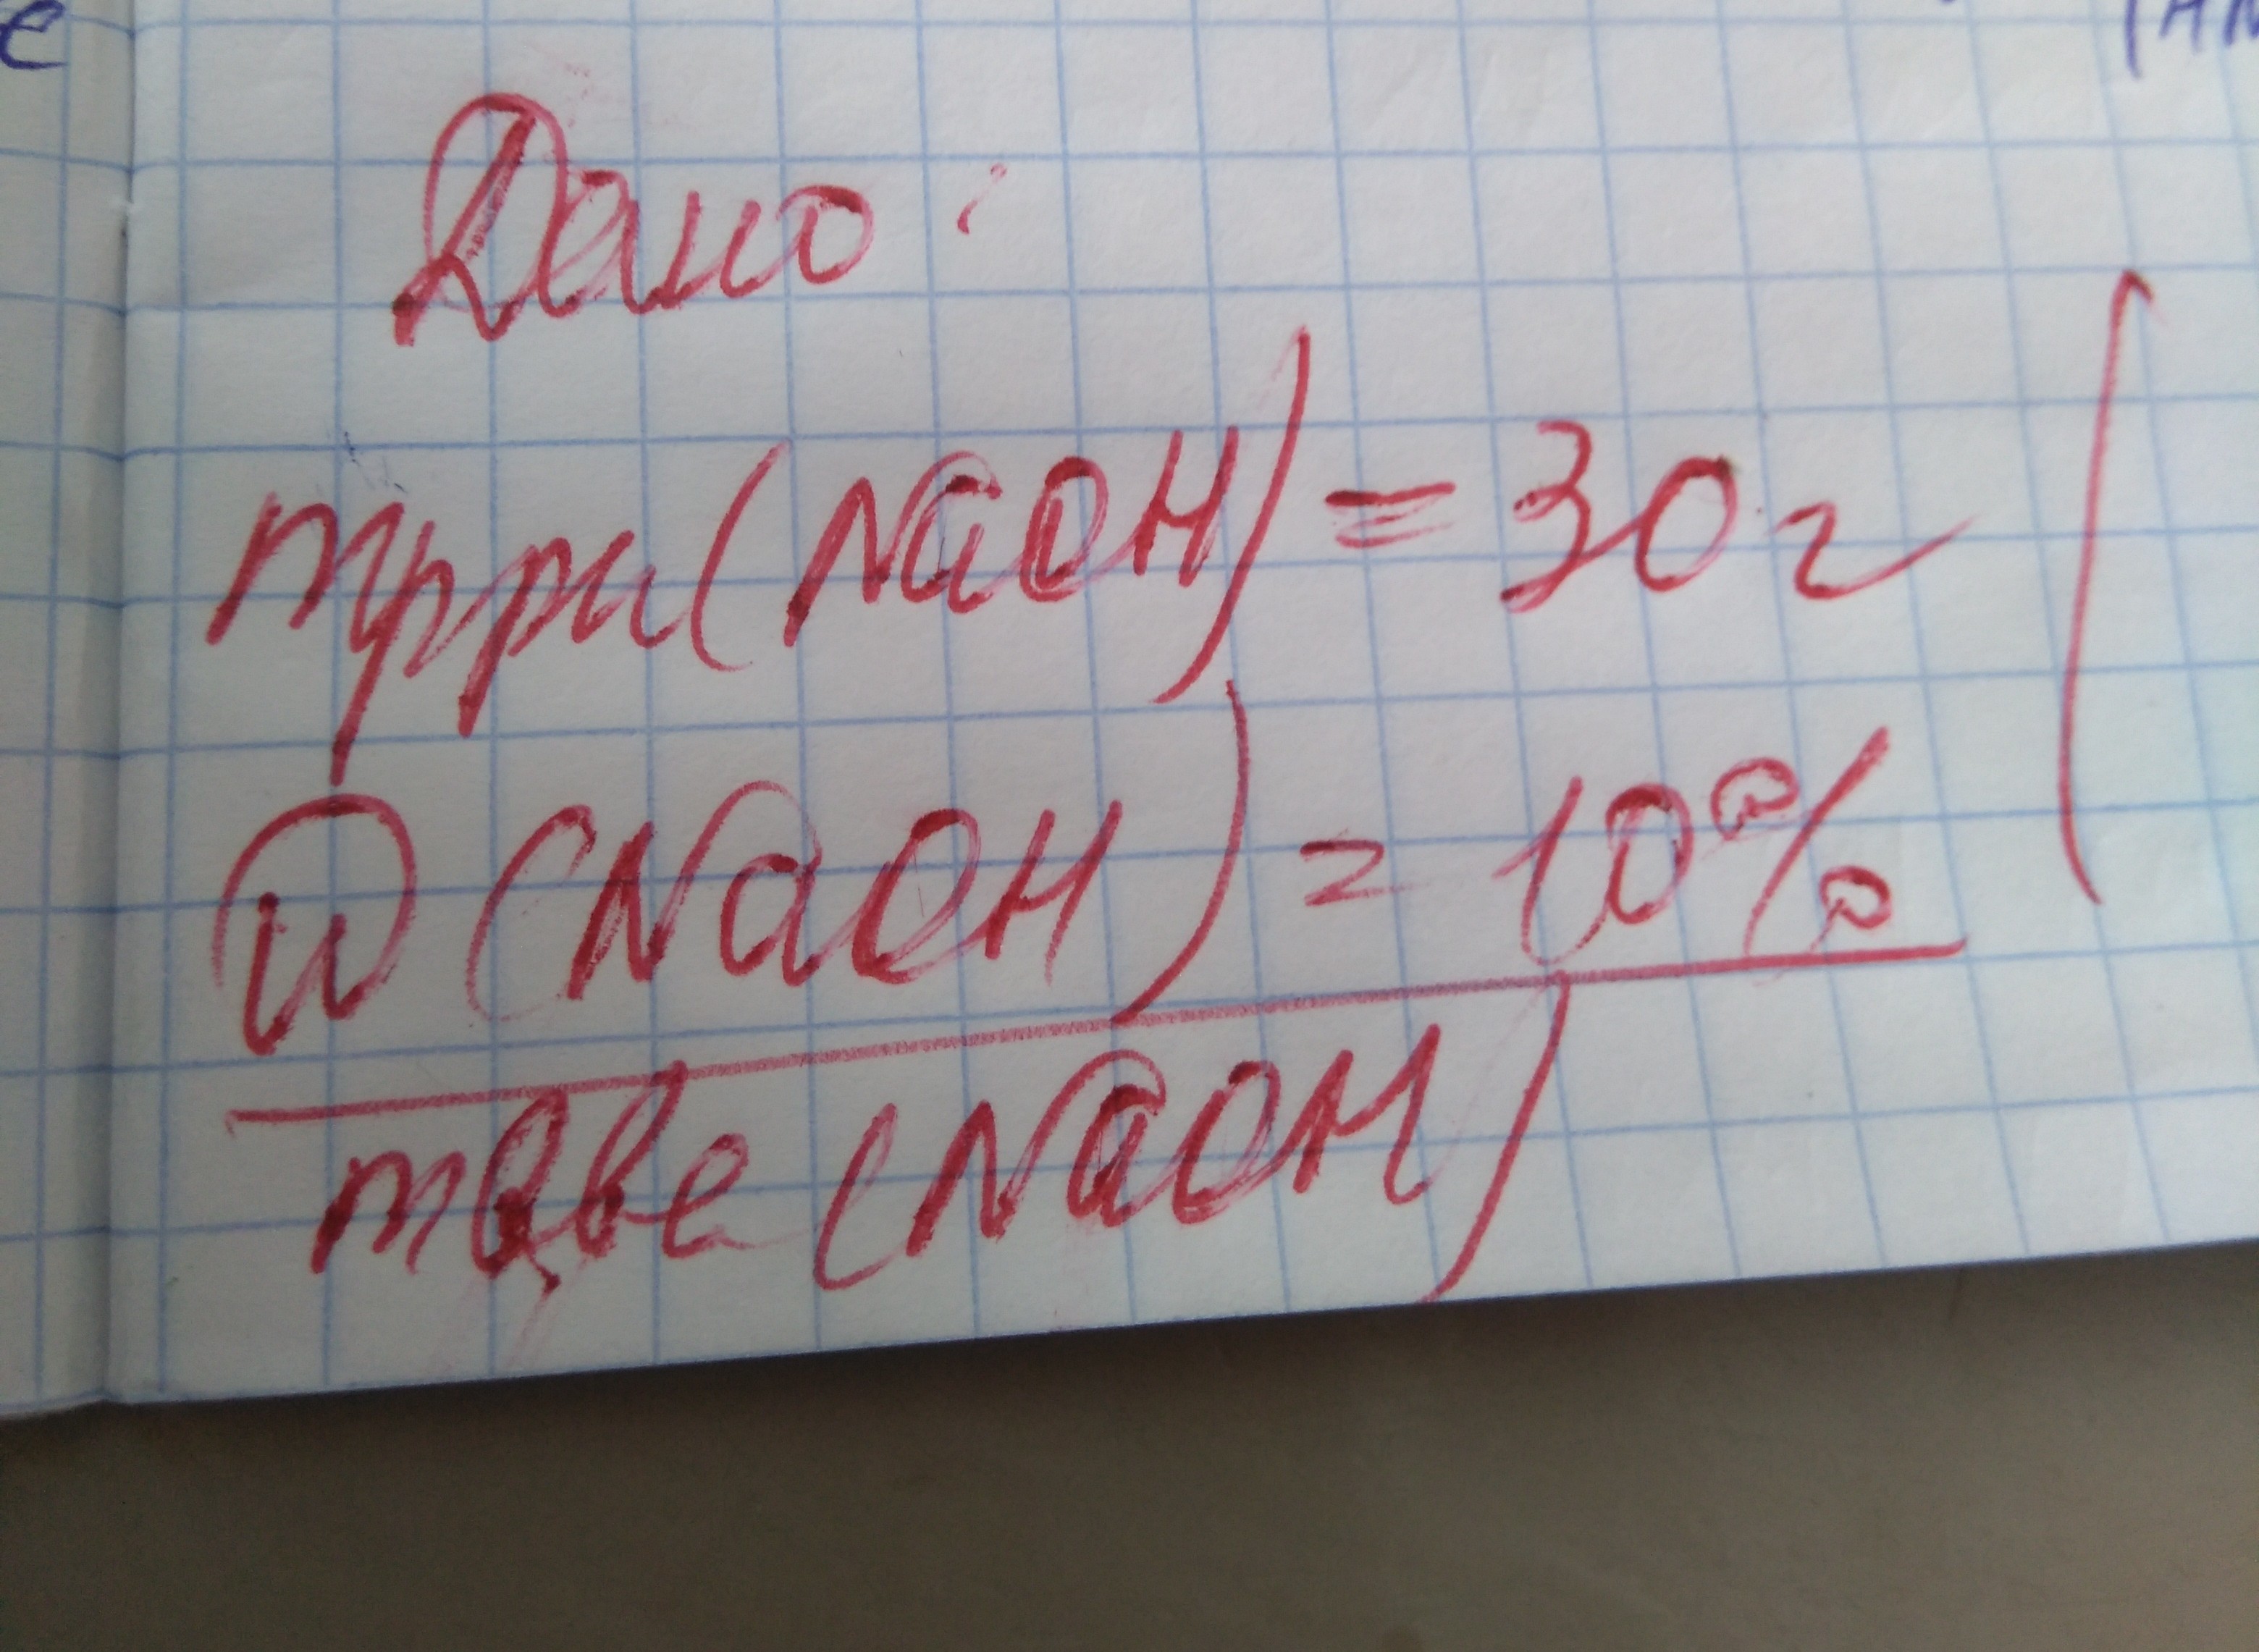 Дано:
mр-ра (NaOH) = 30 г
W (NaOH) = 10%
m в-ве (NaOH)